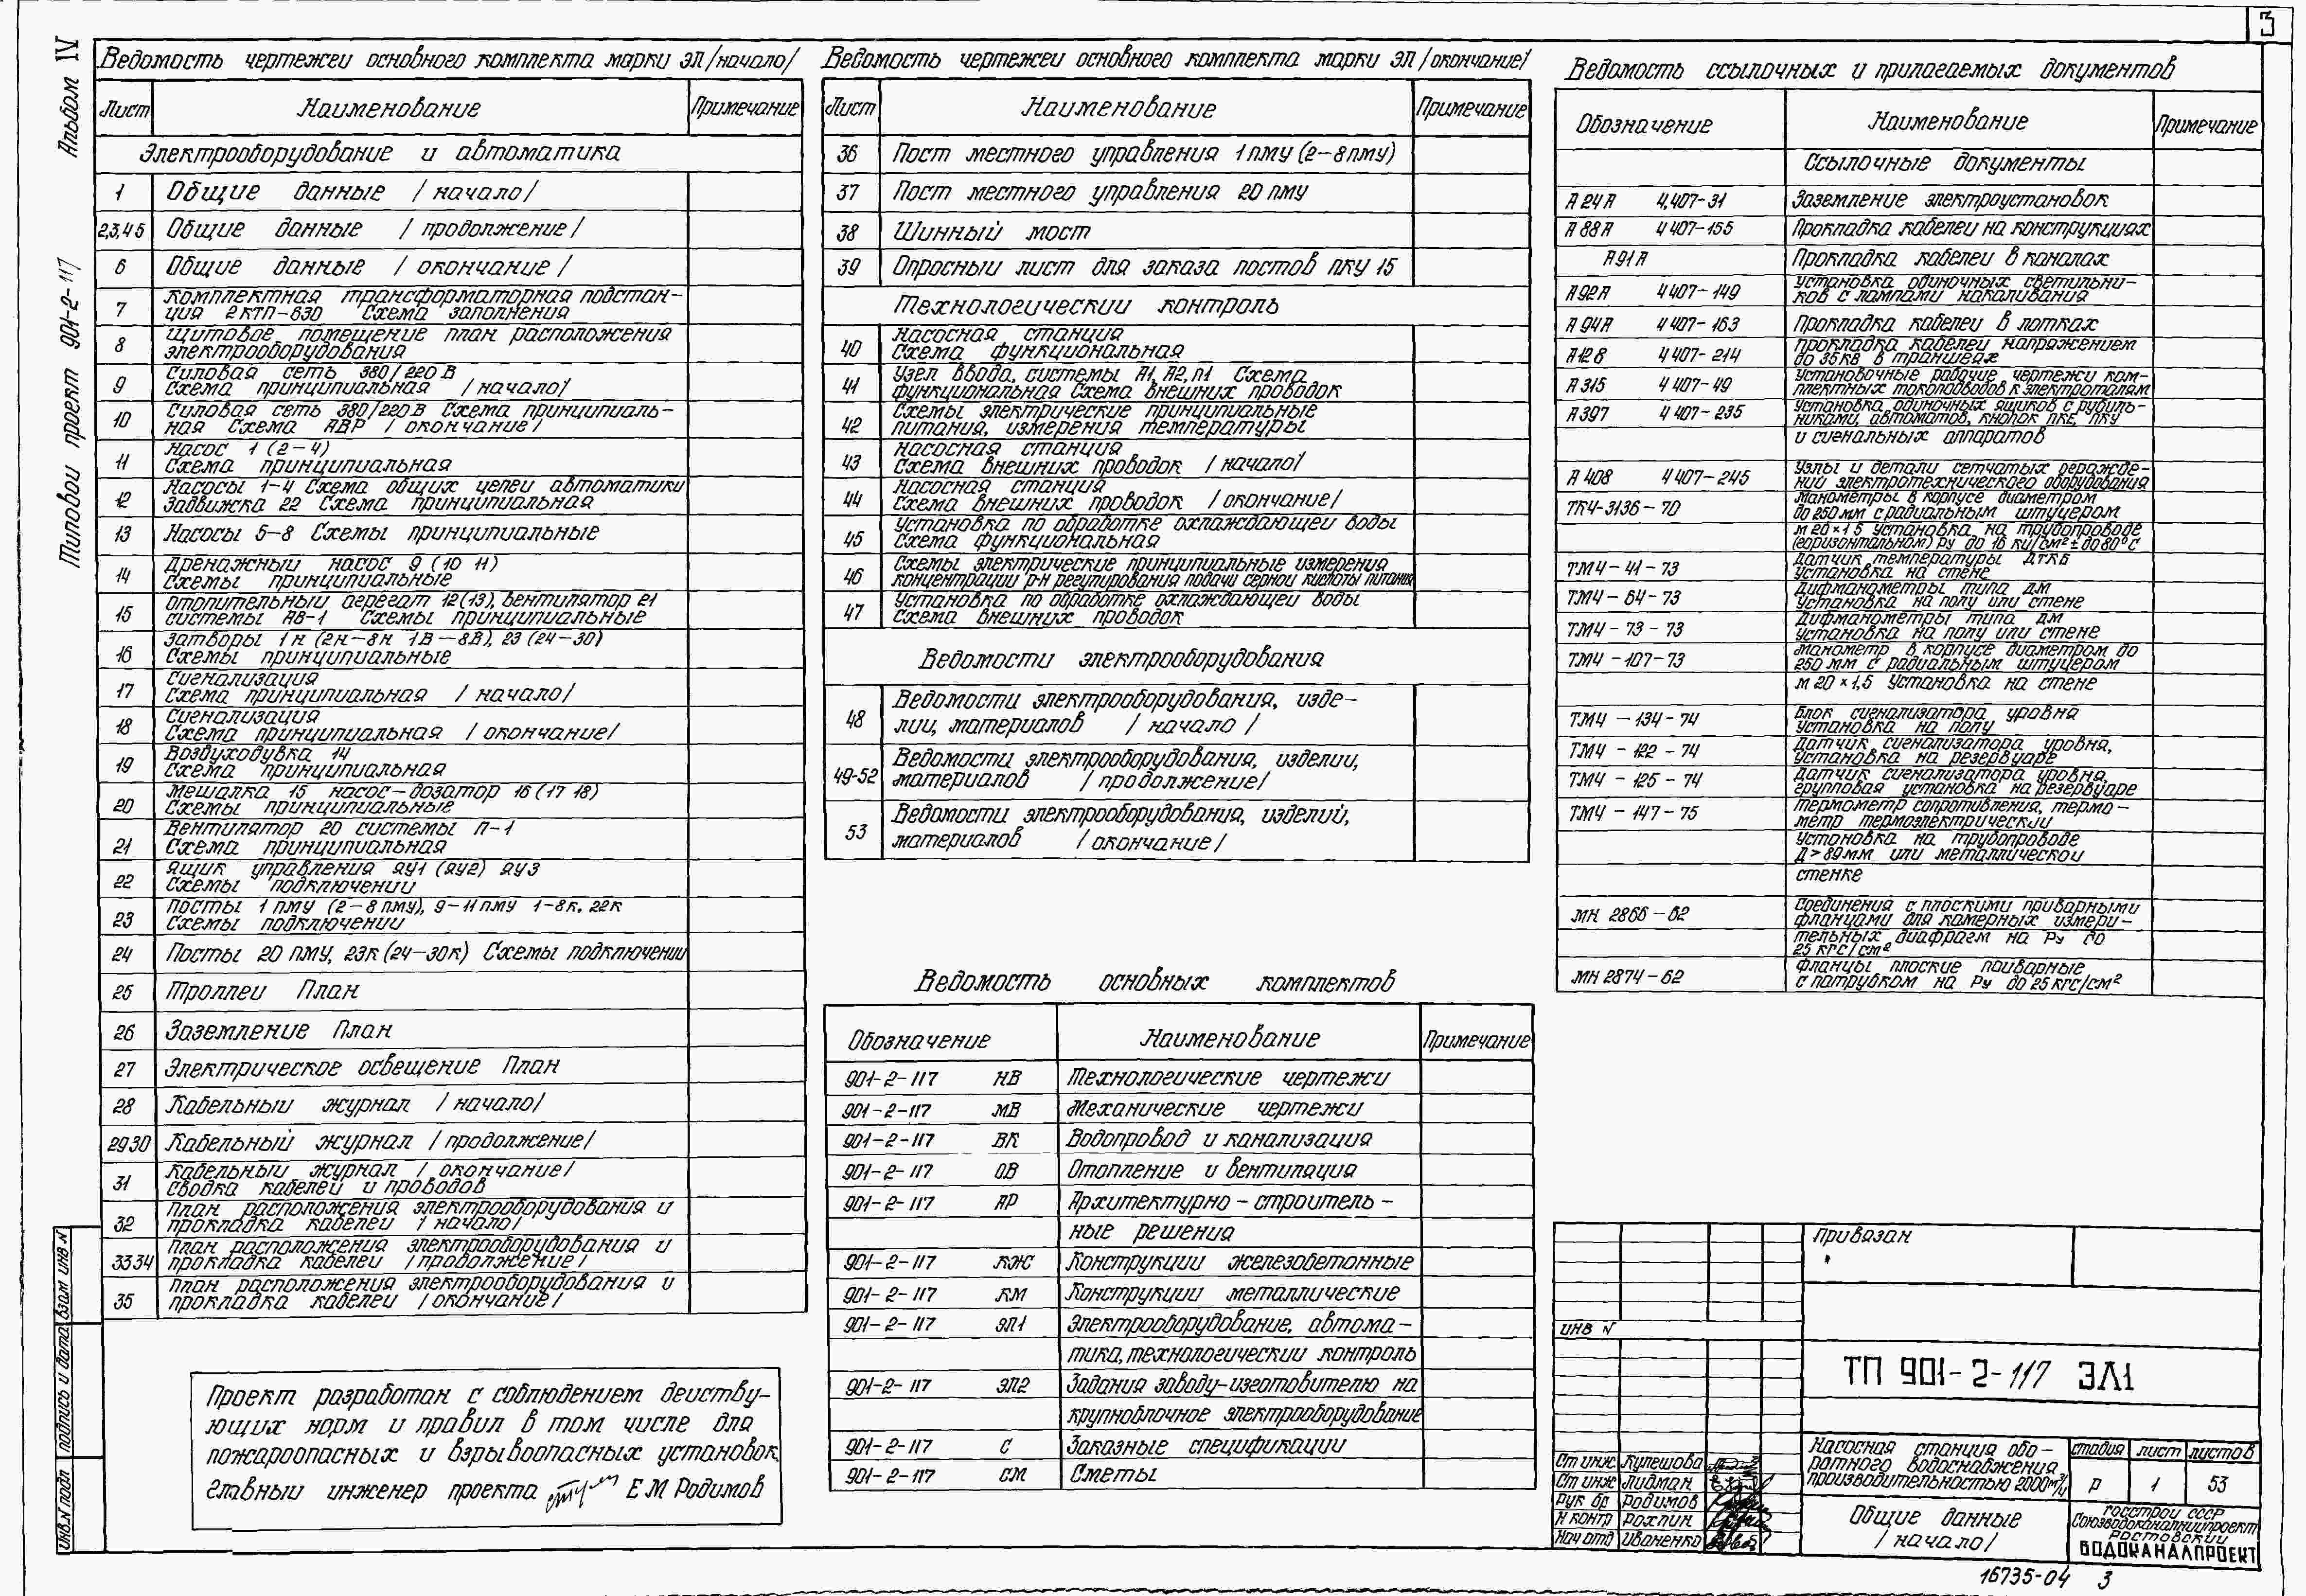 3
Альбом IV
Типовой проект 901-2-117
Ведомость чертежей основного комплекта марки ЭЛ /начало/
Лист Наименование Примечание
Электрооборудование и автоматика
1 Общие данные /начало/
2,3,4 5 Общие данные /продолжение/
6 Общие данные /окончание/
7 Комплектная трансформаторная подстан-
ция 2КТП-630 Схема заполнения
8 Щитовое помещение план расположения
электрооборудования
9 Силовая сеть 380/220 В
Схема принципиальная /начало/
10 Силовая сеть 380/220 В Схема принципиаль-
ная Схема АВР /окончание/
11 Насос 1 (2-4)
Схема принципиальная
12 Насосы 1-4 Схема общих цепей автоматики
Задвижка 22 Схема принципиальная
13 Насосы 5-8 Схемы принципиальные
14 Дренажный насос 9 (10 11)
Схемы принципиальные
15 Отопительный агрегат 12(13), вентилятор 21
системы АВ-1 Схемы принципиальные
16 Затворы 1н (2н-8н 1В-8В), 23 (24-30)
Схемы принципиальные
17 Сигнализация
Схема принципиальная /начало/
18 Сигнализация
Схема принципиальная /окончание/
19 Воздуходувка 14
Схема принципиальная
20 Мешалка 15 насос-дозатор 16 (17 18)
Схемы принципиальные
21 Вентилятор 20 системы П-1
Схема принципиальная
22 Ящик управления ЯУ1 (ЯУ2) ЯУ3
Схемы подключений
23 Посты 1 ПМУ (2-8 ПМУ), 9-11 ПМУ 1-8к, 22к
Схемы подключений
24 Посты 20 ПМУ, 23к (24-30к) Схемы подключений
25 Троллеи План
26 Заземление План
27 Электрическое освещение План
28 Кабельный журнал /начало/
29 30 Кабельный журнал /продолжение/
31 Кабельный журнал /окончание/
Сводка кабелей и проводов
32 План расположения электрооборудования и
прокладка кабелей /начало/
33 34 План расположения электрооборудования и
прокладка кабелей /продолжение/
35 План расположения электрооборудования и
прокладка кабелей /окончание/
Проект разработан с соблюдением действу-
ющих норм и правил в том числе для
пожароопасных и взрывоопасных установок.
Главный инженер проекта Е М Родимов
Ведомость чертежей основного комплекта марки ЭЛ /окончание/
Лист Наименование Примечание
36 Пост местного управления 1 ПМУ (2-8 ПМУ)
37 Пост местного управления 20 ПМУ
38 Шинный мост
39 Опросный лист для заказа постов ПКУ 15
Технологический контроль
40 Насосная станция
Схема функциональная
41 Узел ввода, системы А1, А2, П1 Схема
функциональная Схема внешних проводок
42 Схемы электрические принципиальные
питания, измерения температуры
43 Насосная станция
Схема внешних проводок /начало/
44 Насосная станция
Схема внешних проводок /окончание/
45 Установка по обработке охлаждающей воды
Схема функциональная
46 Схемы электрические принципиальные измерения
концентрации р-н регулирования подачи серной кислоты питания
47 Установка по обработке охлаждающей воды
Схема внешних проводок
Ведомости электрооборудования
48 Ведомости электрооборудования, изде-
лий, материалов /начало/
49-52 Ведомости электрооборудования, изделий,
материалов /продолжение/
53 Ведомости электрооборудования, изделий,
материалов /окончание/
Ведомость основных комплектов
Обозначение Наименование Примечание
901-2-117 НВ Технологические чертежи
901-2-117 МВ Механические чертежи
901-2-117 ВК Водопровод и канализация
901-2-117 ОВ Отопление и вентиляция
901-2-117 АР Архитектурно-строитель-
ные решения
901-2-117 КЖ Конструкции железобетонные
901-2-117 КМ Конструкции металлические
901-2-117 ЭЛ1 Электрооборудование, автома-
тика, технологический контроль
901-2-117 ЭЛ2 Задания заводу-изготовителю на
крупноблочное электрооборудование
901-2-117 С Заказные спецификации
901-2-117 СМ Сметы
Ведомость ссылочных и прилагаемых документов
Обозначение Наименование Примечание
Ссылочные документы
А24А 4.407-31 Заземление электроустановок
А88А 4 407-155 Прокладка кабелей на конструкциях
А91А Прокладка кабелей в каналах
А92А 4 407-149 Установка одиночных светильни-
ков с лампами накаливания
А94А 4 407-163 Прокладка кабелей в лотках
А128 4 407-214 Прокладка кабелей напряжением
до 35 кВ в траншеях
А315 4 407-49 Установочные рабочие чертежи ком-
плектных токоподводов к электроталям
А397 4 407-235 Установка одиночных ящиков с рубиль-
никами, автоматов, кнопок ПКЕ, ПКУ
и сигнальных аппаратов
А408 4 407-245 Узлы и детали сетчатых огражде-
ний электротехнического оборудования
ТК4-3136-70 Манометры в корпусе диаметром
до 250 мм с радиальным штуцером
м 20×1 5 Установка на трубопроводе
(горизонтальном) Ру до 16 кг/см² t до 80°С
ТМ4-41-73 Датчик температуры ДТКБ
Установка на стене
ТМ4-64-73 Дифманометры типа ДМ
Установка на полу или стене
ТМ4-73-73 Дифманометры типа ДМ
Установка на полу или стене
ТМ4-107-73 Манометр в корпусе диаметром до
250 мм с радиальным штуцером
м 20×1,5 Установка на стене
ТМ4-134-74 Блок сигнализатора уровня
Установка на полу
ТМ4-122-74 Датчик сигнализатора уровня,
Установка на резервуаре
ТМ4-125-74 Датчик сигнализатора уровня,
групповая установка на резервуаре
ТМ4-147-75 Термометр сопротивления, термо-
метр термоэлектрический
Установка на трубопроводе
Д>89мм или металлической
стенке
МН 2866-62 Соединения с плоскими приварными
фланцами для камерных измери-
тельных диафрагм на Ру до
25 кгс/см²
МН 2874-62 Фланцы плоские приварные
с патрубком на Ру до 25 кгс/см²
Привязан
ИНВ N
ТП 901-2-117 ЭЛ1
Ст инж Кулешова
Ст инж Лидман
Рук бр Родимов
Н контр Рохлин
Нач отд Иваненко
Насосная станция обо-
ротного водоснабжения
производительностью 2000 м³/ч
стадия лист листов
Р 1 53
Общие данные
/начало/
Госстрой СССР
Союзводоканалниипроект
Ростовский
ВОДОКАНАЛПРОЕКТ
16735-04 3
Взам инв N
Подпись и дата
Инв.N подл